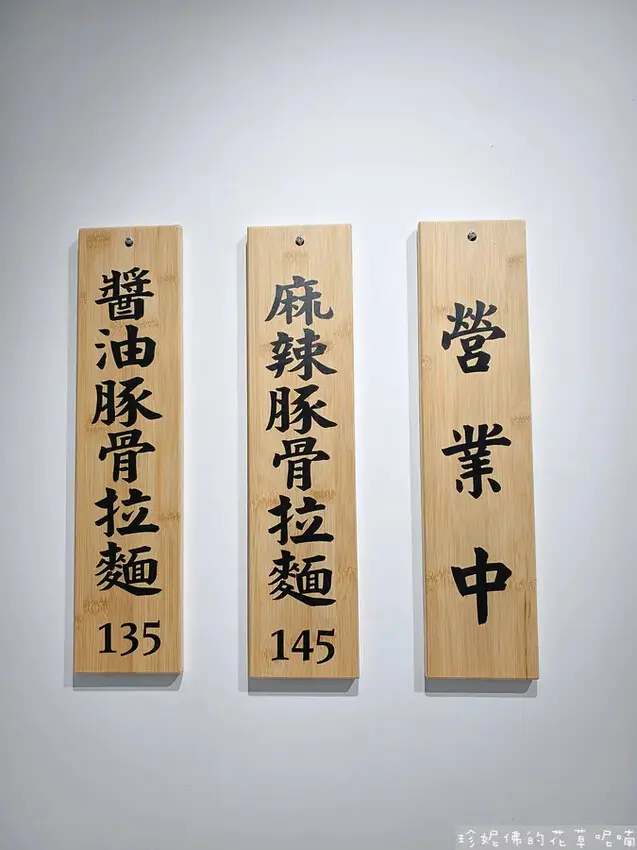 醬油豚骨拉麵
135
麻辣豚骨拉麵
145
營業中
珍妮佛的花草呢喃